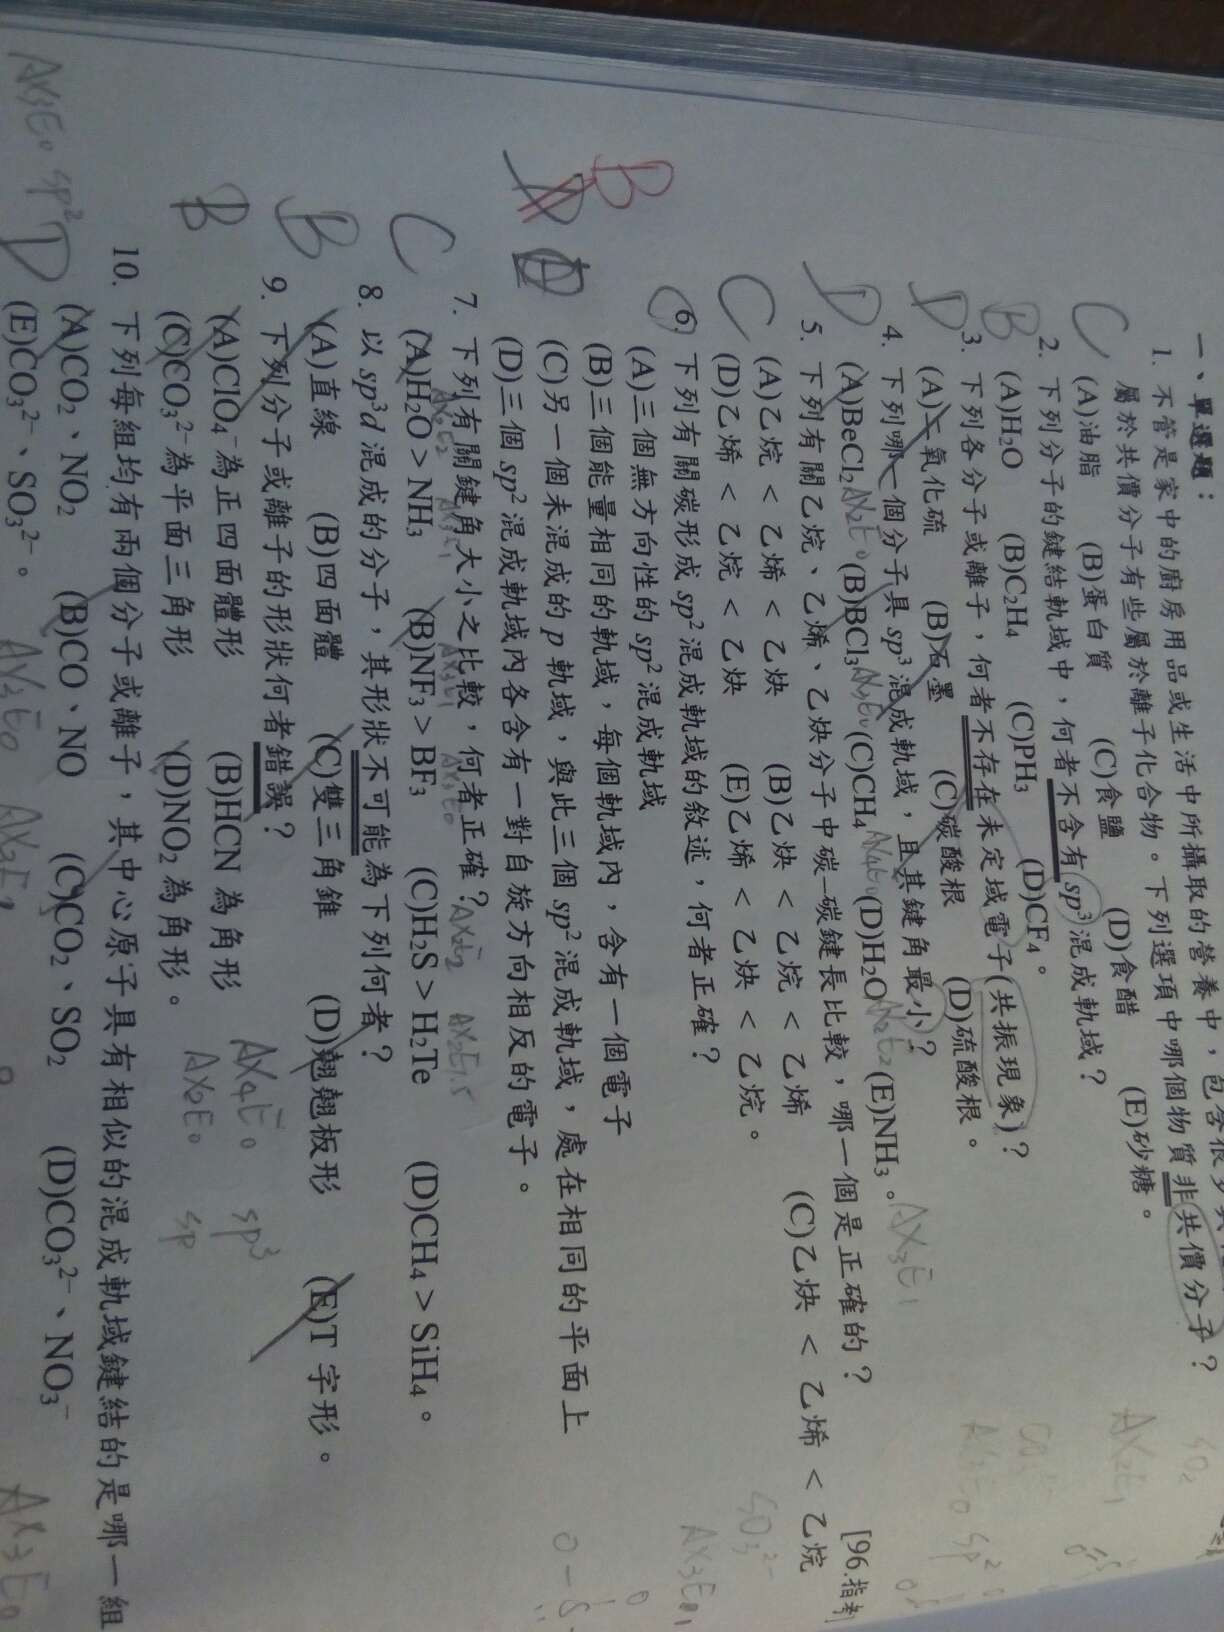 一、單選題：
1. 不管是家中的廚房用品或生活中所攝取的營養中，包含很多
屬於共價分子有些屬於離子化合物。下列選項中哪個物質非共價分子？
(A)油脂 (B)蛋白質 (C)食鹽 (D)食醋 (E)砂糖。
C
2. 下列分子的鍵結軌域中，何者不含有 sp³混成軌域？
(A)H₂O (B)C₂H₄ (C)PH₃ (D)CF₄。
B
3. 下列各分子或離子，何者不存在未定域電子(共振現象)？
(A)二氧化硫 (B)石墨 (C)碳酸根 (D)硫酸根。
D
4. 下列哪一個分子具 sp³混成軌域，且其鍵角最小？
(A)BeCl₂ (B)BCl₃ (C)CH₄ (D)H₂O (E)NH₃。
D
AX₂E₀ AX₃E₀ AX₄E₀ AX₂E₂ AX₃E₁
5. 下列有關乙烷、乙烯、乙炔分子中碳—碳鍵長比較，哪一個是正確的？ [96.指考]
(A)乙烷 < 乙烯 < 乙炔 (B)乙炔 < 乙烷 < 乙烯 (C)乙炔 < 乙烯 < 乙烷
(D)乙烯 < 乙烷 < 乙炔 (E)乙烯 < 乙炔 < 乙烷。
C
6. 下列有關碳形成 sp²混成軌域的敘述，何者正確？
(A)三個無方向性的 sp²混成軌域
(B)三個能量相同的軌域，每個軌域內，含有一個電子
(C)另一個未混成的 p 軌域，與此三個 sp²混成軌域，處在相同的平面上
(D)三個 sp²混成軌域內各含有一對自旋方向相反的電子。
B
7. 下列有關鍵角大小之比較，何者正確？
(A)H₂O > NH₃ (B)NF₃ > BF₃ (C)H₂S > H₂Te (D)CH₄ > SiH₄。
C
8. 以 sp³d 混成的分子，其形狀不可能為下列何者？
(A)直線 (B)四面體 (C)雙三角錐 (D)翹翹板形 (E)T 字形。
B
9. 下列分子或離子的形狀何者錯誤？
(A)ClO₄⁻為正四面體形 (B)HCN 為角形
(C)CO₃²⁻為平面三角形 (D)NO₂為角形。
B
AX₄E₀ sp³
AX₂E₀ sp
10. 下列每組均有兩個分子或離子，其中心原子具有相似的混成軌域鍵結的是哪一組
(A)CO₂、NO₂ (B)CO、NO (C)CO₂、SO₂ (D)CO₃²⁻、NO₃⁻
(E)CO₃²⁻、SO₃²⁻。
D
AX₃E₀ sp²
AX₃E₀